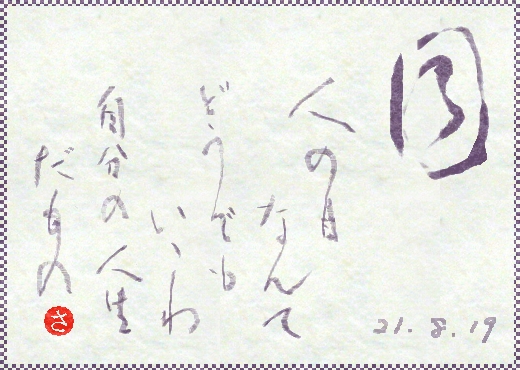 目
人の目
なんて
どうでも
いいわ
自分の人生
だもの
さ
21.8.19